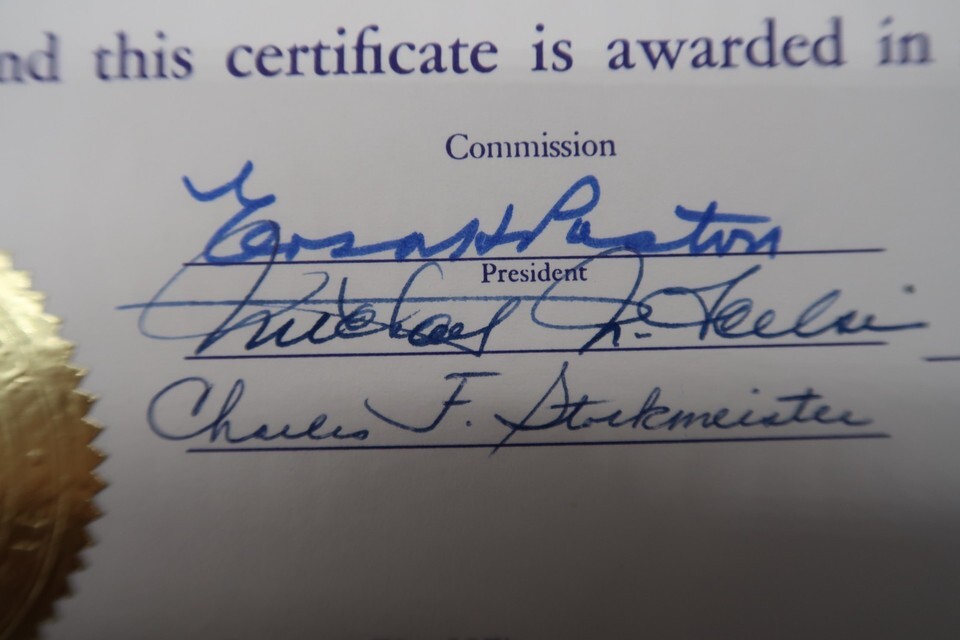 nd this certificate is awarded in
Commission
H Paxton
President
Michael
Charles F. Stockmeister